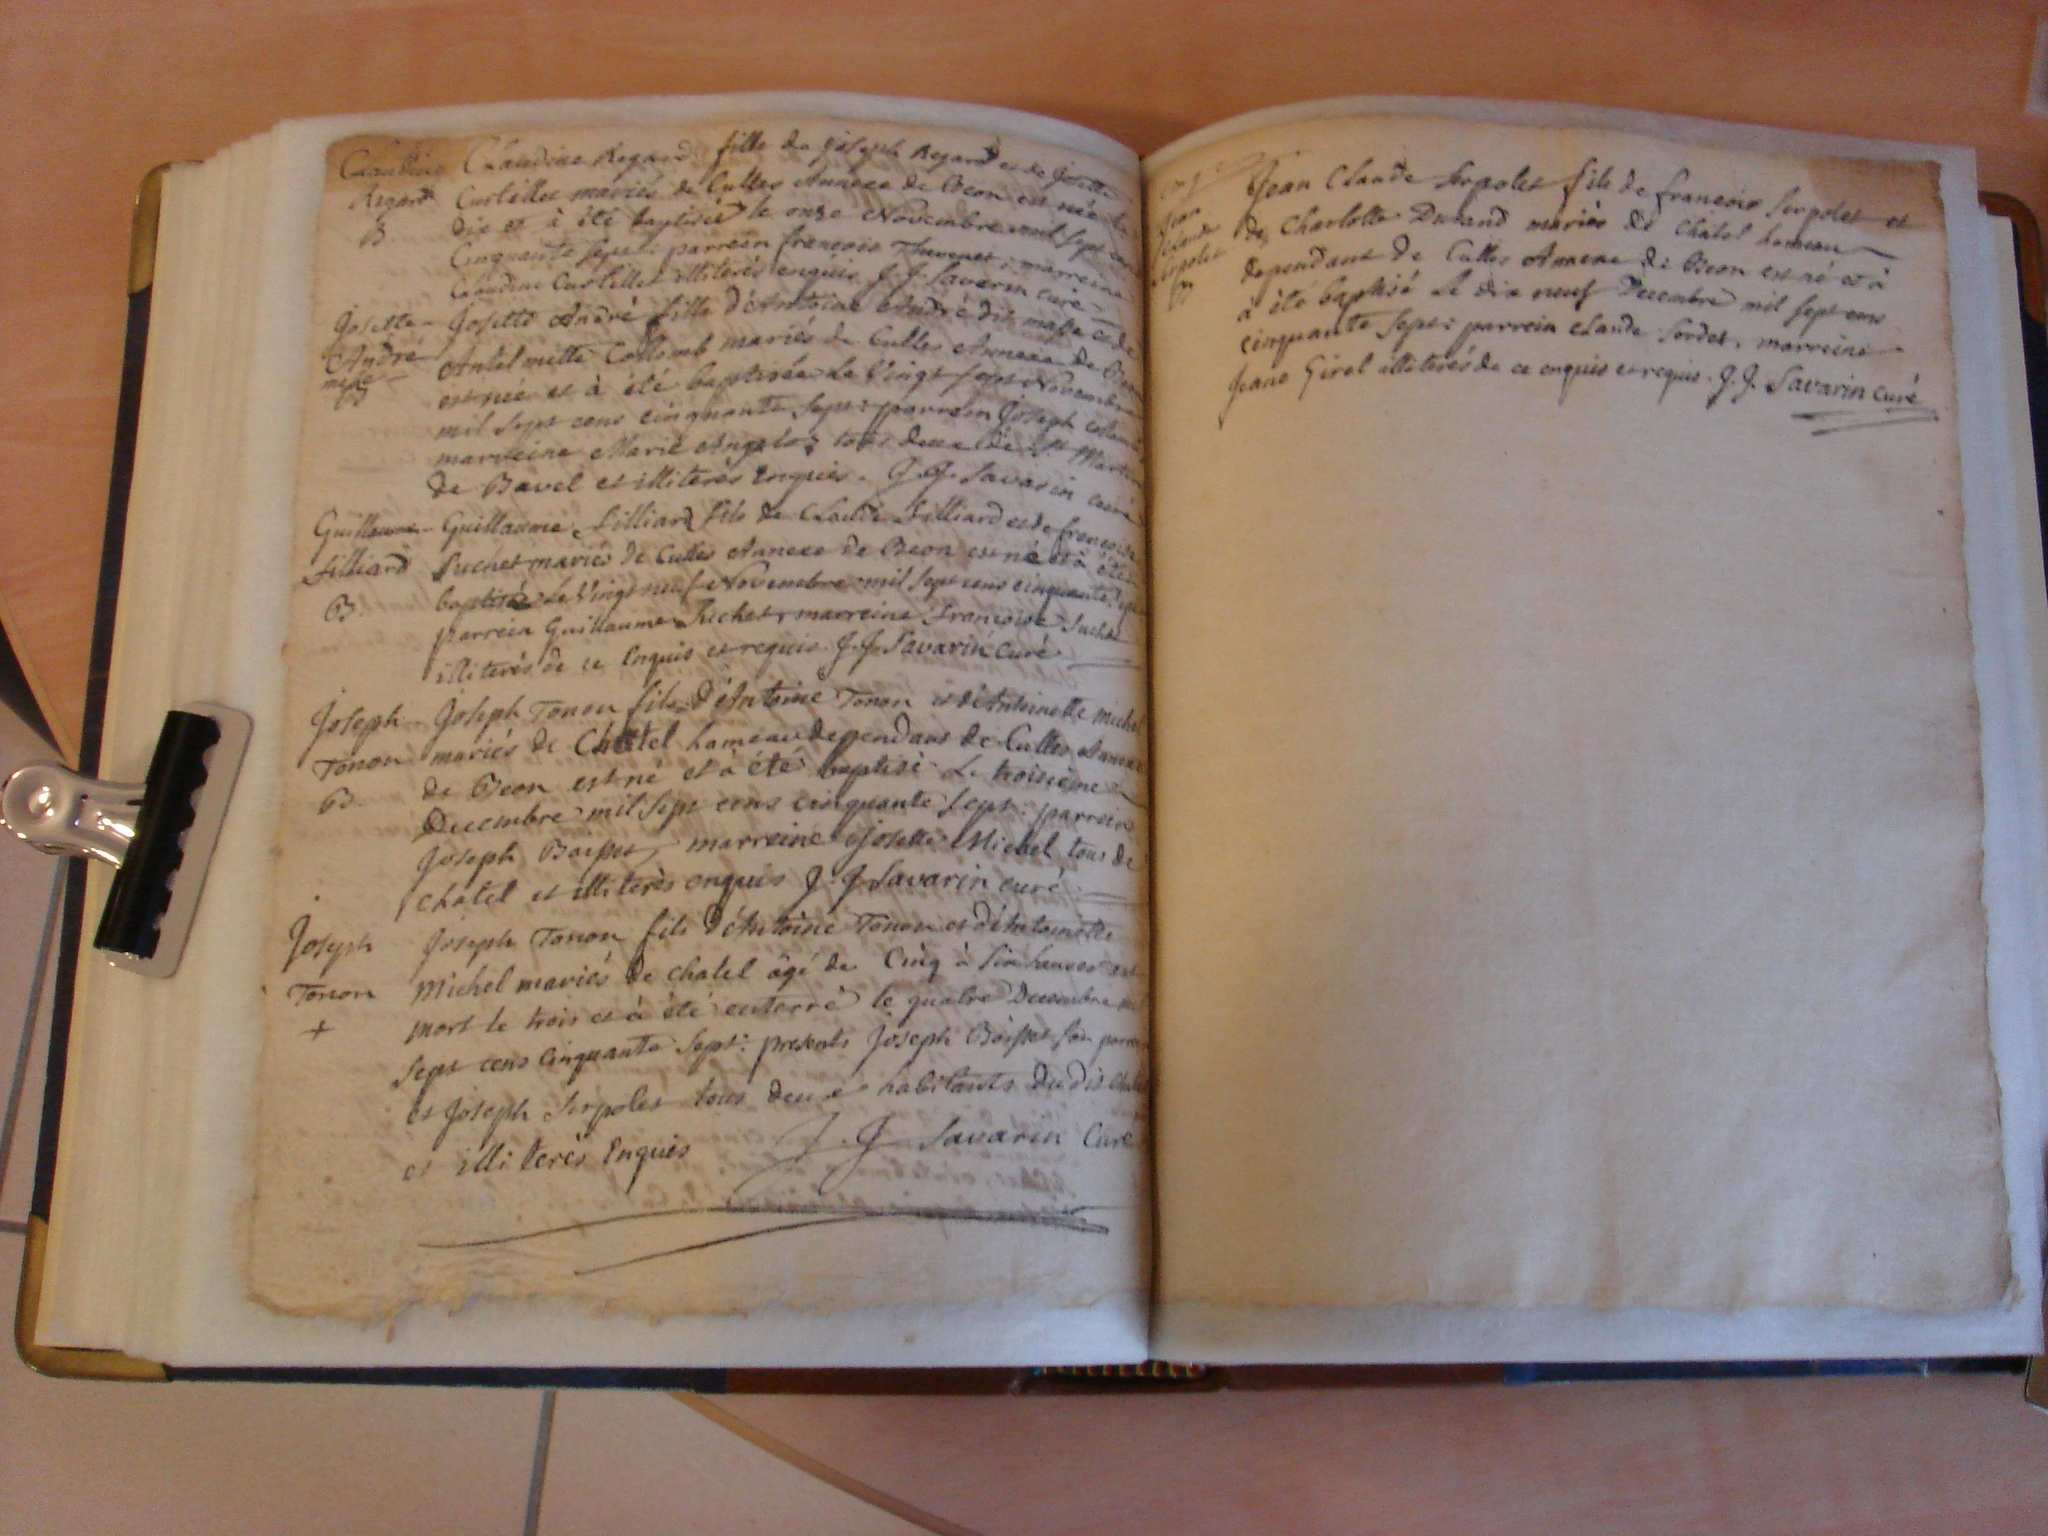 Claudine Claudine Regard fille de Joseph Regard et de Josette
Regard Curtillet mariés de Culles Annexe de Beon est née le
B. dix et à été baptisée le onze Novembre mil sept cens
Cinquante sept: parrein françois Thevenet, marreine
Claudine Curtillet illiterés enquis J. J. Savarin curé
Josette Josette André fille d'Antoine André dit masse et de
André Antelmette Collomb mariés de Culles Annexe de Beon
masse est née et à été baptisée Le Vingt sept Novembre
B mil sept cens cinquante sept: parrein Joseph
marreine Marie tous deux de St. Martin
de Bavel et illiterés Enquis. J. J. Savarin curé
Guillaume Guillaume Filliard fils de Claude Filliard et de françoise
Filliard Suchet mariés de Culles Annexe de Beon est né et à été
B. baptisé Le Vingt neuf Novembre mil sept cens cinquante sept
parrein Guillaume Suchet, marreine Françoise Suchet
illiterés de ce Enquis et requis. J. J. Savarin Curé
Joseph Joseph Tonon fils d'Antoine Tonon et d'Antoinette Michel
Tonon mariés de Chatel hameau dependant de Culles Annexe
B. de Beon est né et à été baptisé Le troisième
Decembre mil sept cens cinquante sept: parrein
Joseph Boisset, marreine Josette Michel tous de
Chatel et illiterés enquis J. J. Savarin curé
Joseph Joseph Tonon fils d'Antoine Tonon et d'Antoinette
Tonon Michel mariés de Chatel âgé de Cinq à Six heures est
+ mort le trois et à été enterré le quatre Decembre mil
Sept cens Cinquante Sept: presents Joseph Boisset son parrein
et Joseph Serpolet tous deux habitants du dit Chatel
et illiterés Enquis J. J. Savarin Curé
Jean Jean Claude Serpolet fils de françois Serpolet et
Claude de Charlotte Durand mariés de Chatel hameau
Serpolet dependant de Culles Annexe de Beon est né et à
B à été baptisé Le dix neuf Decembre mil sept cens
cinquante sept: parrein Claude Sordet, marreine
Jeane Girel illiterés de ce enquis et requis. J. J. Savarin Curé